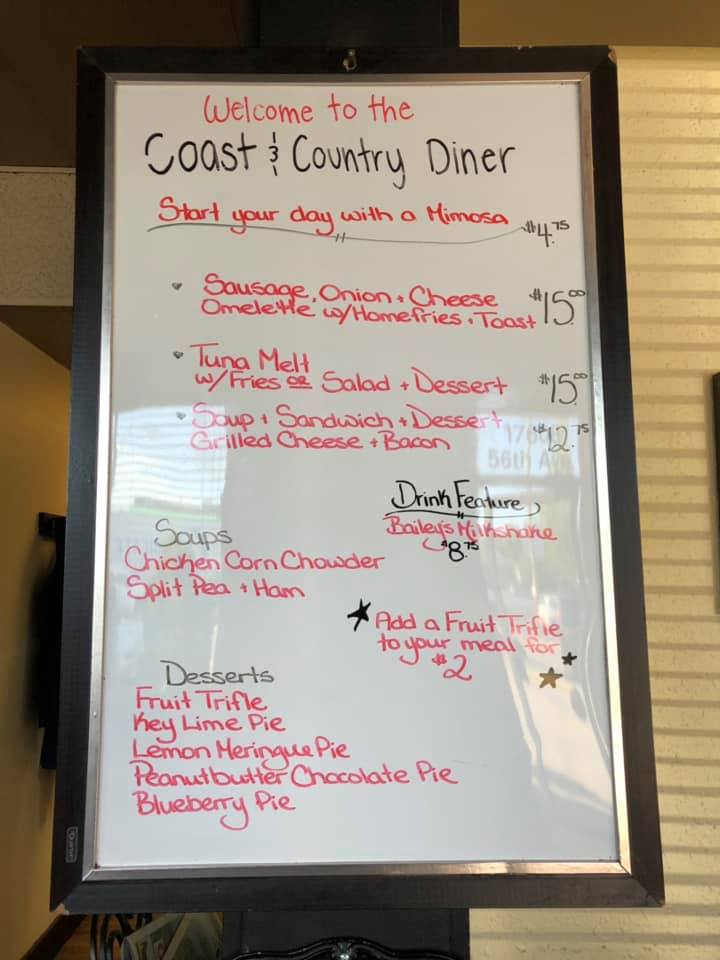 Welcome to the
Coast & Country Diner
Start your day with a Mimosa $4.75
Sausage, Onion + Cheese
Omelette w/Homefries + Toast $15.00
Tuna Melt
w/Fries OR Salad + Dessert $15.00
Soup + Sandwich + Dessert
Grilled Cheese + Bacon $12.75
56th A
Drink Feature
Bailey's Milkshake
$8.75
Soups
Chicken Corn Chowder
Split Pea + Ham
Add a Fruit Trifle
to your meal for
$2
Desserts
Fruit Trifle
Key Lime Pie
Lemon Meringue Pie
Peanutbutter Chocolate Pie
Blueberry Pie
Quartet